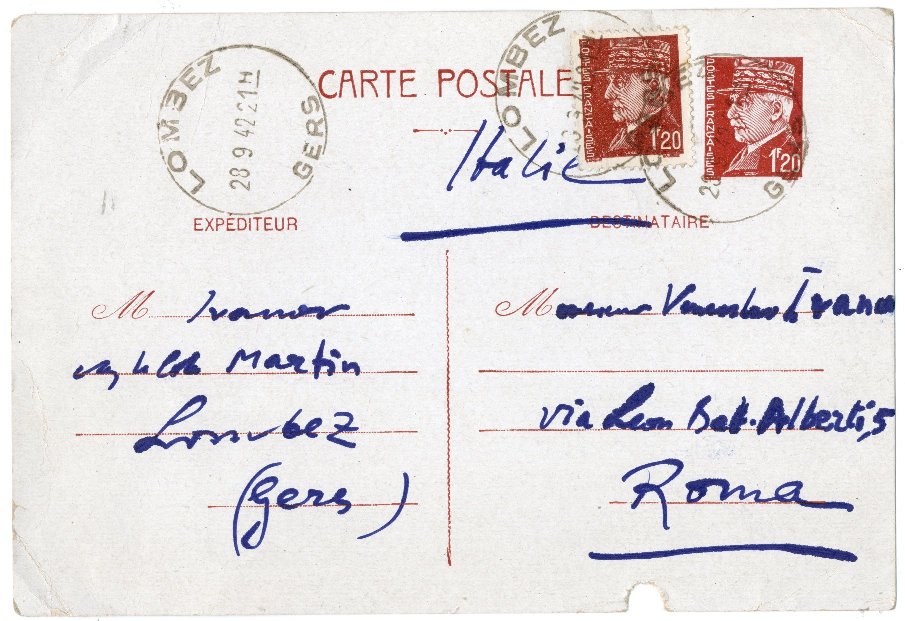 CARTE POSTALE
LOMBEZ
28 9 42 21 H
GERS
LOMBEZ
POSTES FRANÇAISES
1F20
LOMBEZ
28
GERS
POSTES FRANÇAISES
1F20
Italie
EXPÉDITEUR
DESTINATAIRE
M Ivanov
Martin
Lombez
(Gers)
Monsieur Venceslao Ivanov
via Leon Bat. Alberti, 5
Roma